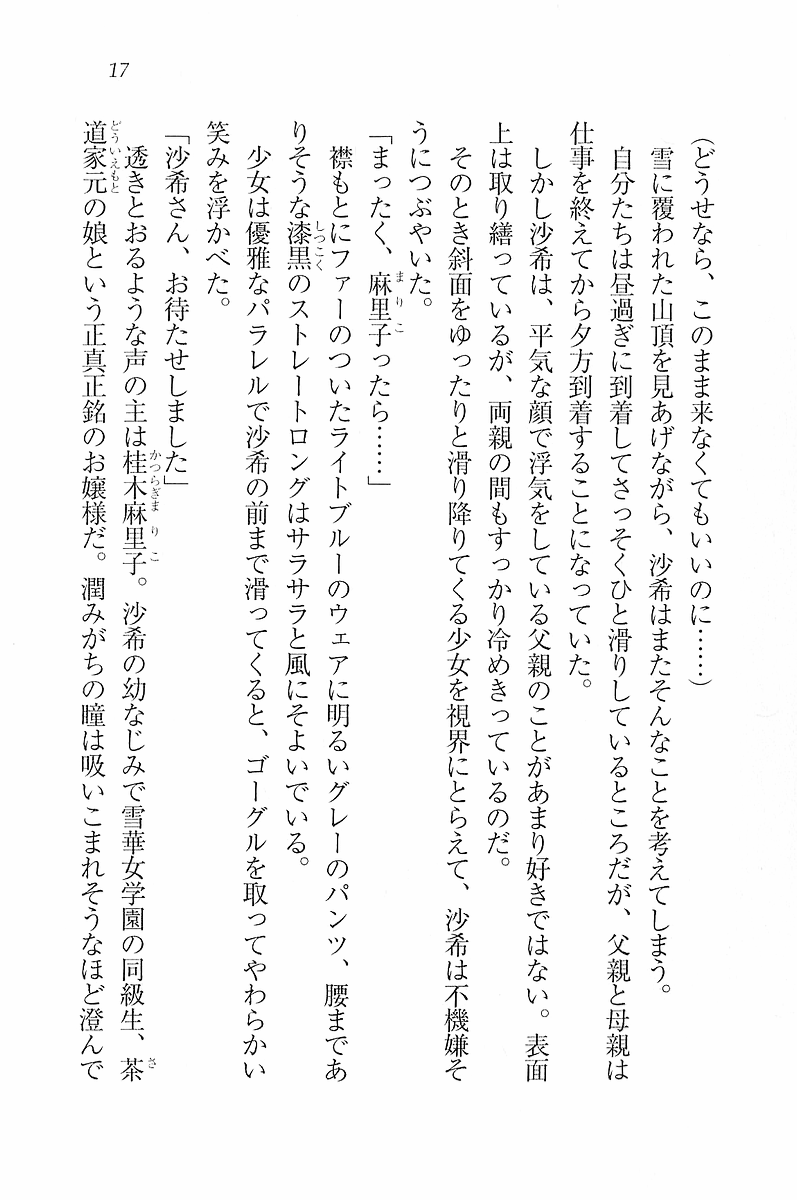 17
(どうせなら、このまま来なくてもいいのに……)
雪に覆われた山頂を見あげながら、沙希はまたそんなことを考えてしまう。
自分たちは昼過ぎに到着してさっそくひと滑りしているところだが、父親と母親は
仕事を終えてから夕方到着することになっていた。
しかし沙希は、平気な顔で浮気をしている父親のことがあまり好きではない。表面
上は取り繕っているが、両親の間もすっかり冷めきっているのだ。
そのとき斜面をゆったりと滑り降りてくる少女を視界にとらえて、沙希は不機嫌そ
うにつぶやいた。
「まったく、麻里子ったら……」
襟もとにファーのついたライトブルーのウェアに明るいグレーのパンツ、腰まであ
りそうな漆黒のストレートロングはサラサラと風にそよいでいる。
少女は優雅なパラレルで沙希の前まで滑ってくると、ゴーグルを取ってやわらかい
笑みを浮かべた。
「沙希さん、お待たせしました」
透きとおるような声の主は桂木麻里子。沙希の幼なじみで雪華女学園の同級生、茶
道家元の娘という正真正銘のお嬢様だ。潤みがちの瞳は吸いこまれそうなほど澄んで